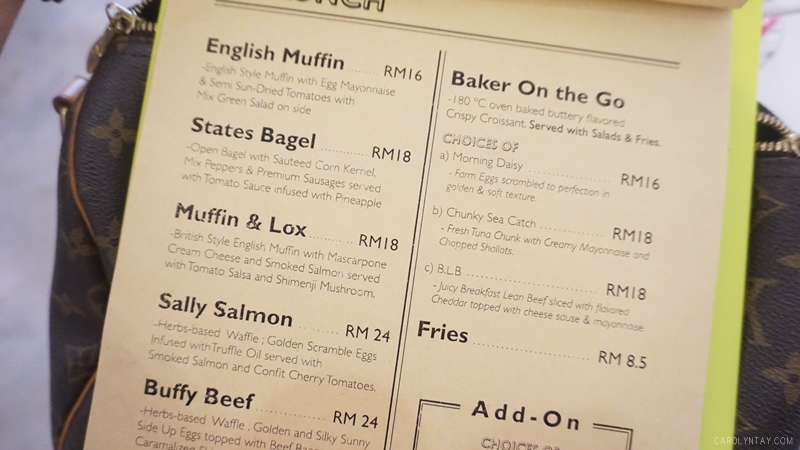 English Muffin ........ RM16
-English Style Muffin with Egg Mayonnaise
& Semi Sun-Dried Tomatoes with
Mix Green Salad on side
States Bagel ............ RM18
-Open Bagel with Sauteed Corn Kernel,
Mix Peppers & Premium Sausages served
with Tomato Sauce infused with Pineapple
Muffin & Lox .......... RM18
-British Style English Muffin with Mascarpone
Cream Cheese and Smoked Salmon served
with Tomato Salsa and Shimenji Mushroom.
Sally Salmon ............ RM 24
-Herbs-based Waffle ; Golden Scramble Eggs
Infused with Truffle Oil served with
Smoked Salmon and Confit Cherry Tomatoes.
Buffy Beef ................ RM 24
-Herbs-based Waffle ; Golden and Silky Sunny
Side Up Eggs topped with Beef
Baker On the Go
-180 °C oven baked buttery flavored
Crispy Croissant. Served with Salads & Fries.
CHOICES OF
a) Morning Daisy .................... RM16
- Farm Eggs scrambled to perfection in
golden & soft texture.
b) Chunky Sea Catch ................ RM18
- Fresh Tuna Chunk with Creamy Mayonnaise and
Chopped Shallots.
c) B.L.B ................................ RM18
- Juicy Breakfast Lean Beef sliced with flavored
Cheddar topped with cheese sause & mayonnaise.
Fries ........................ RM 8.5
Add-On
CHOICES OF
CAROLYNTAY.COM